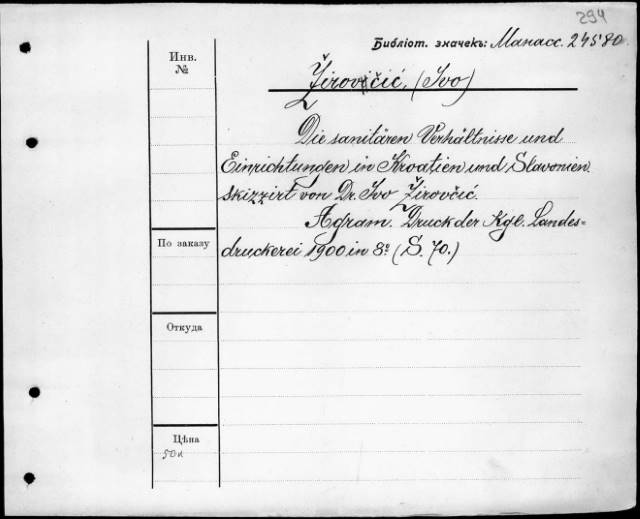 294
Библіот. значекъ: Манасс. 24580.
Инв.
№
Žirovčić, (Ivo)
Die sanitären Verhältnisse und
Einrichtungen in Kroatien und Slavonien
skizzirt von Dr. Ivo Žirovčić.
Agram. Druck der Kgl. Landes-
druckerei 1900 in 8º (S. 70.)
По заказу
Откуда
Цѣна
50к